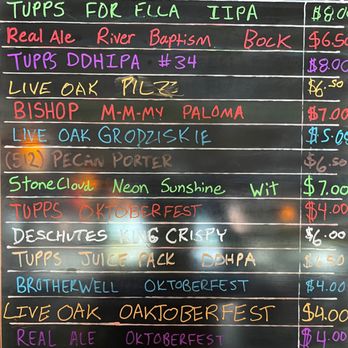 TUPPS FOR ELLA IIPA $8.00
Real Ale River Baptism Bock $6.50
TUPPS DDHIPA #34 $8.00
LIVE OAK PILZ $6.50
BISHOP M-M-MY PALOMA $7.00
LIVE OAK GRODZISKIE $5.00
(512) PECAN PORTER $6.50
StoneCloud Neon Sunshine Wit $7.00
TUPPS OKTOBERFEST $4.00
DESCHUTES KING CRISPY $6.00
TUPPS JUICE PACK DDHPA $6.50
BROTHERWELL OKTOBERFEST $4.00
LIVE OAK OAKTOBERFEST $4.00
REAL ALE OKTOBERFEST $4.00